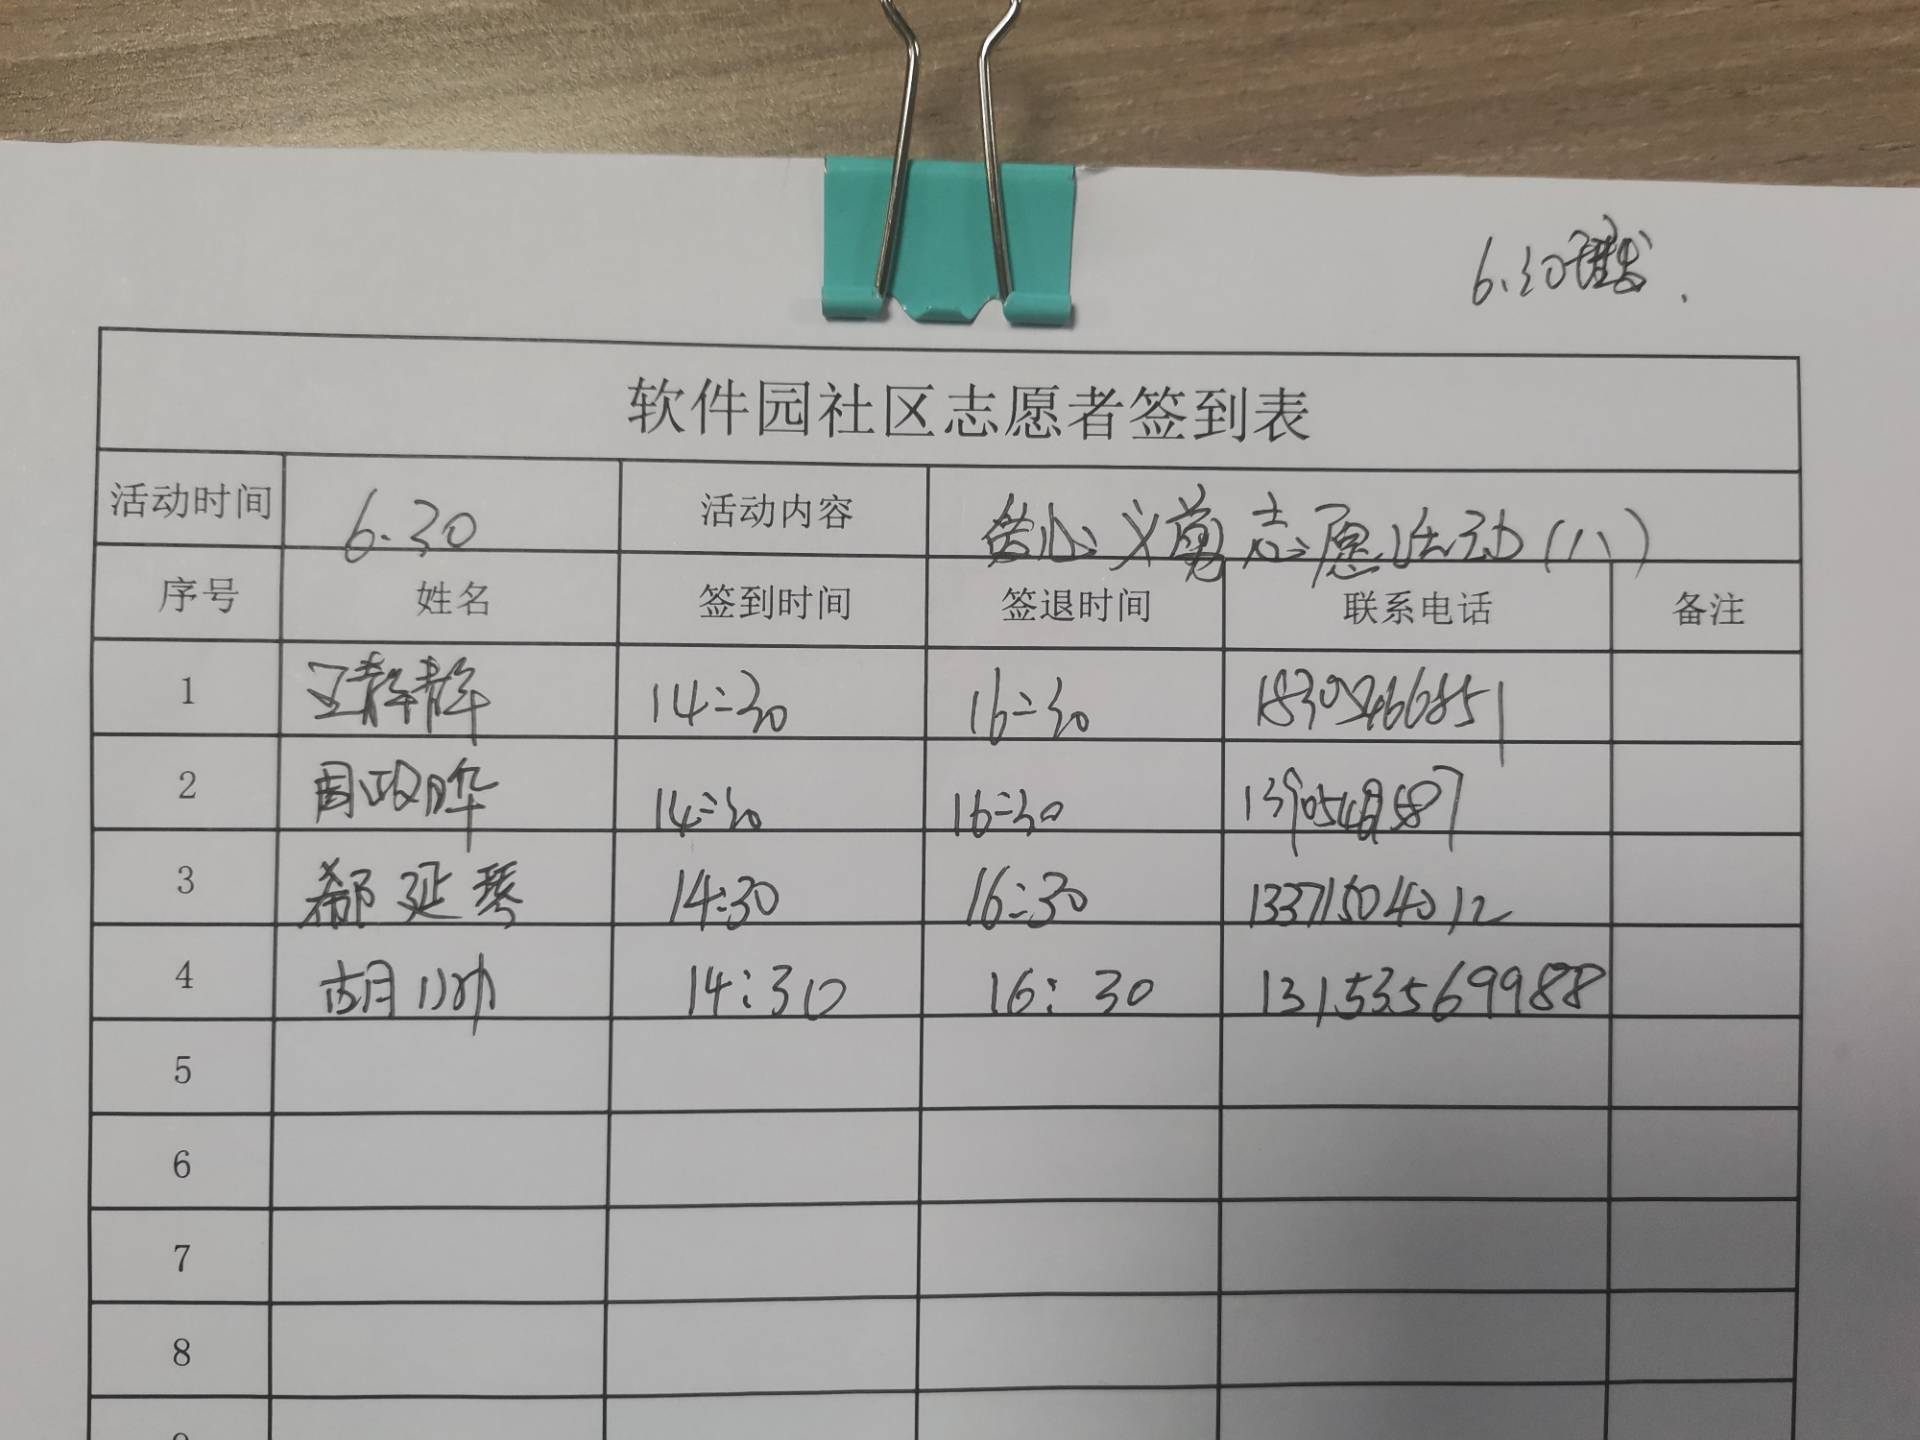 6.30
软件园社区志愿者签到表
活动时间 6.30 活动内容 爱心义剪志愿活动(八)
序号 姓名 签到时间 签退时间 联系电话 备注
1 王静静 14:30 16:30
2 周政晔 14:30 16:30
3 郗延琴 14:30 16:30 13371504012
4 胡小帅 14:30 16:30 13153569988
5
6
7
8